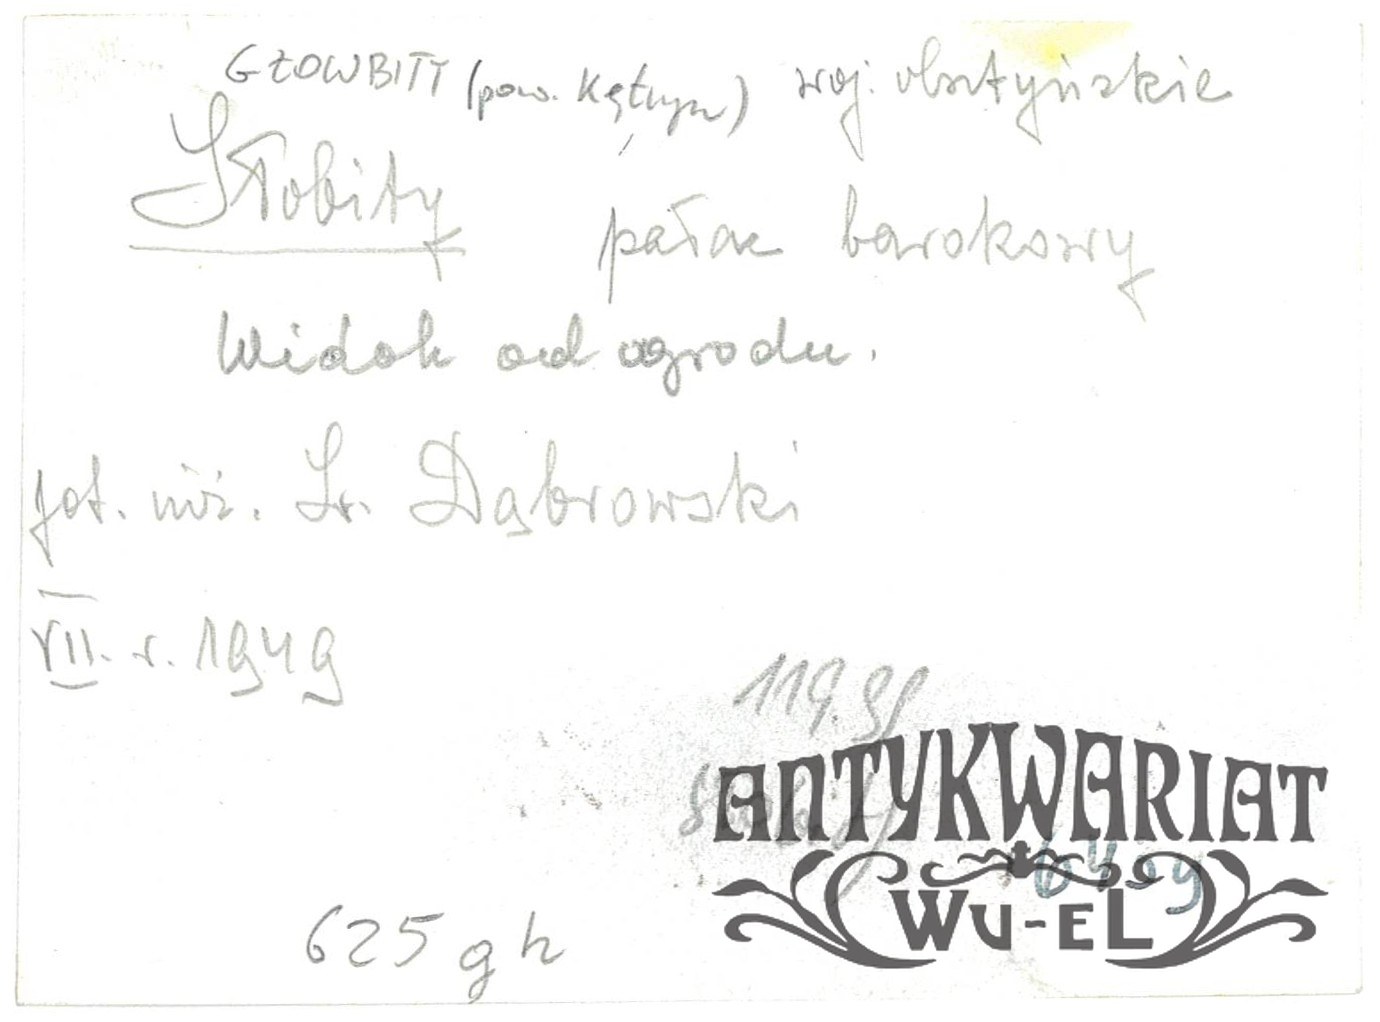 GŁOWBITY (pow. Kętrzyn) woj. olsztyńskie
Słobity pałac barokowy
Widok od ogrodu.
fot. inż. St. Dąbrowski
VII. r. 1949
119
ANTYKWARIAT
Wu-EL
625 gh